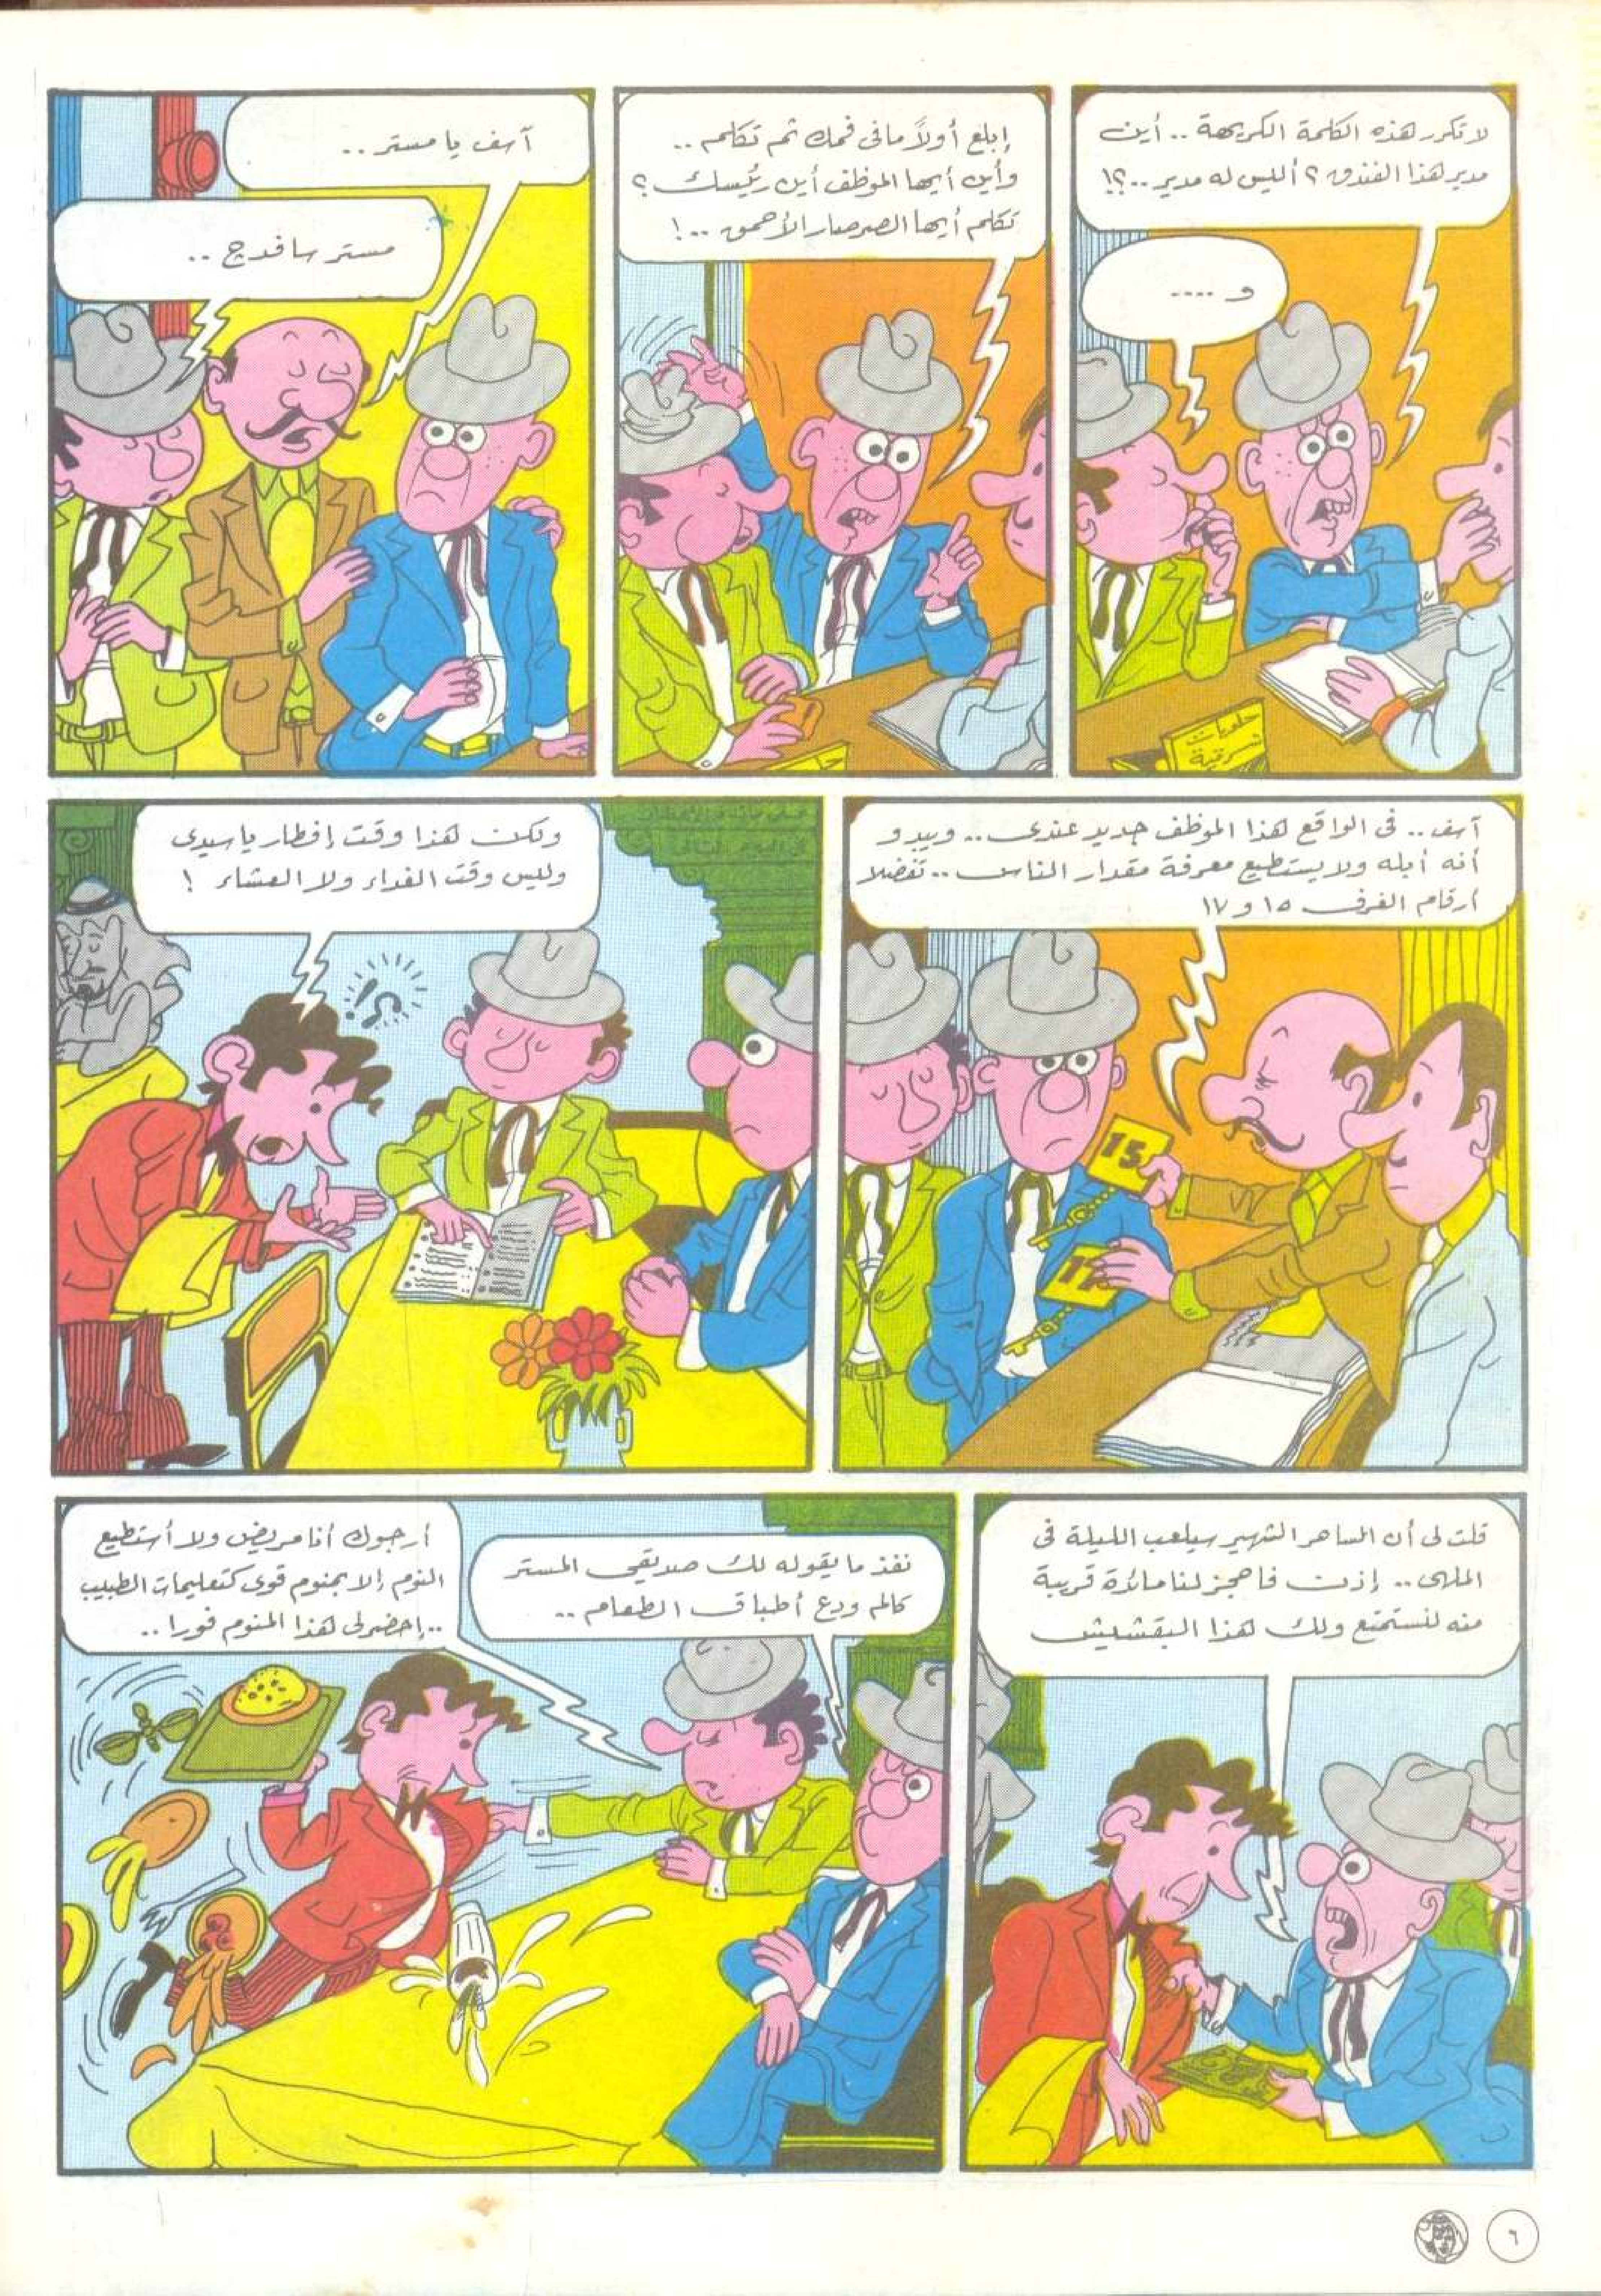 لا تكرر هذه الكلمة الكريهة .. أين
مدير هذا الفندق ؟ أليس له مدير ..؟!
و ....
حلويات
شرقية
إبلع أولاً ما فى فمك ثم تكلم ..
وأين أيها الموظف أين رئيسك ؟
تكلم أيها الصرصار الأحمق ..!
آسف يا مستر ..
مستر سافدج ..
آسف .. فى الواقع هذا الموظف جديد عندى .. ويبدو
أنه أبله ولا يستطيع معرفة مقدار الناس .. تفضلا
أرقام الغرف ١٥ و ١٧
15
17
ولكن هذا وقت إفطار يا سيدى
وليس وقت الغداء ولا العشاء !
!؟
قلت لى أن الساهر الشهير سيلعب الليلة فى
الملهى .. إذن فاحجز لنا مائدة قريبة
منه لنستمتع ولك هذا البقشيش
نفذ ما يقوله لك صديقى المستر
كالم ودع أطباق الطعام ..
أرجوك أنا مريض ولا أستطيع
النوم إلا بمنوم قوى كتعليمات الطبيب
..إحضر لى هذا المنوم فورا ..
٦